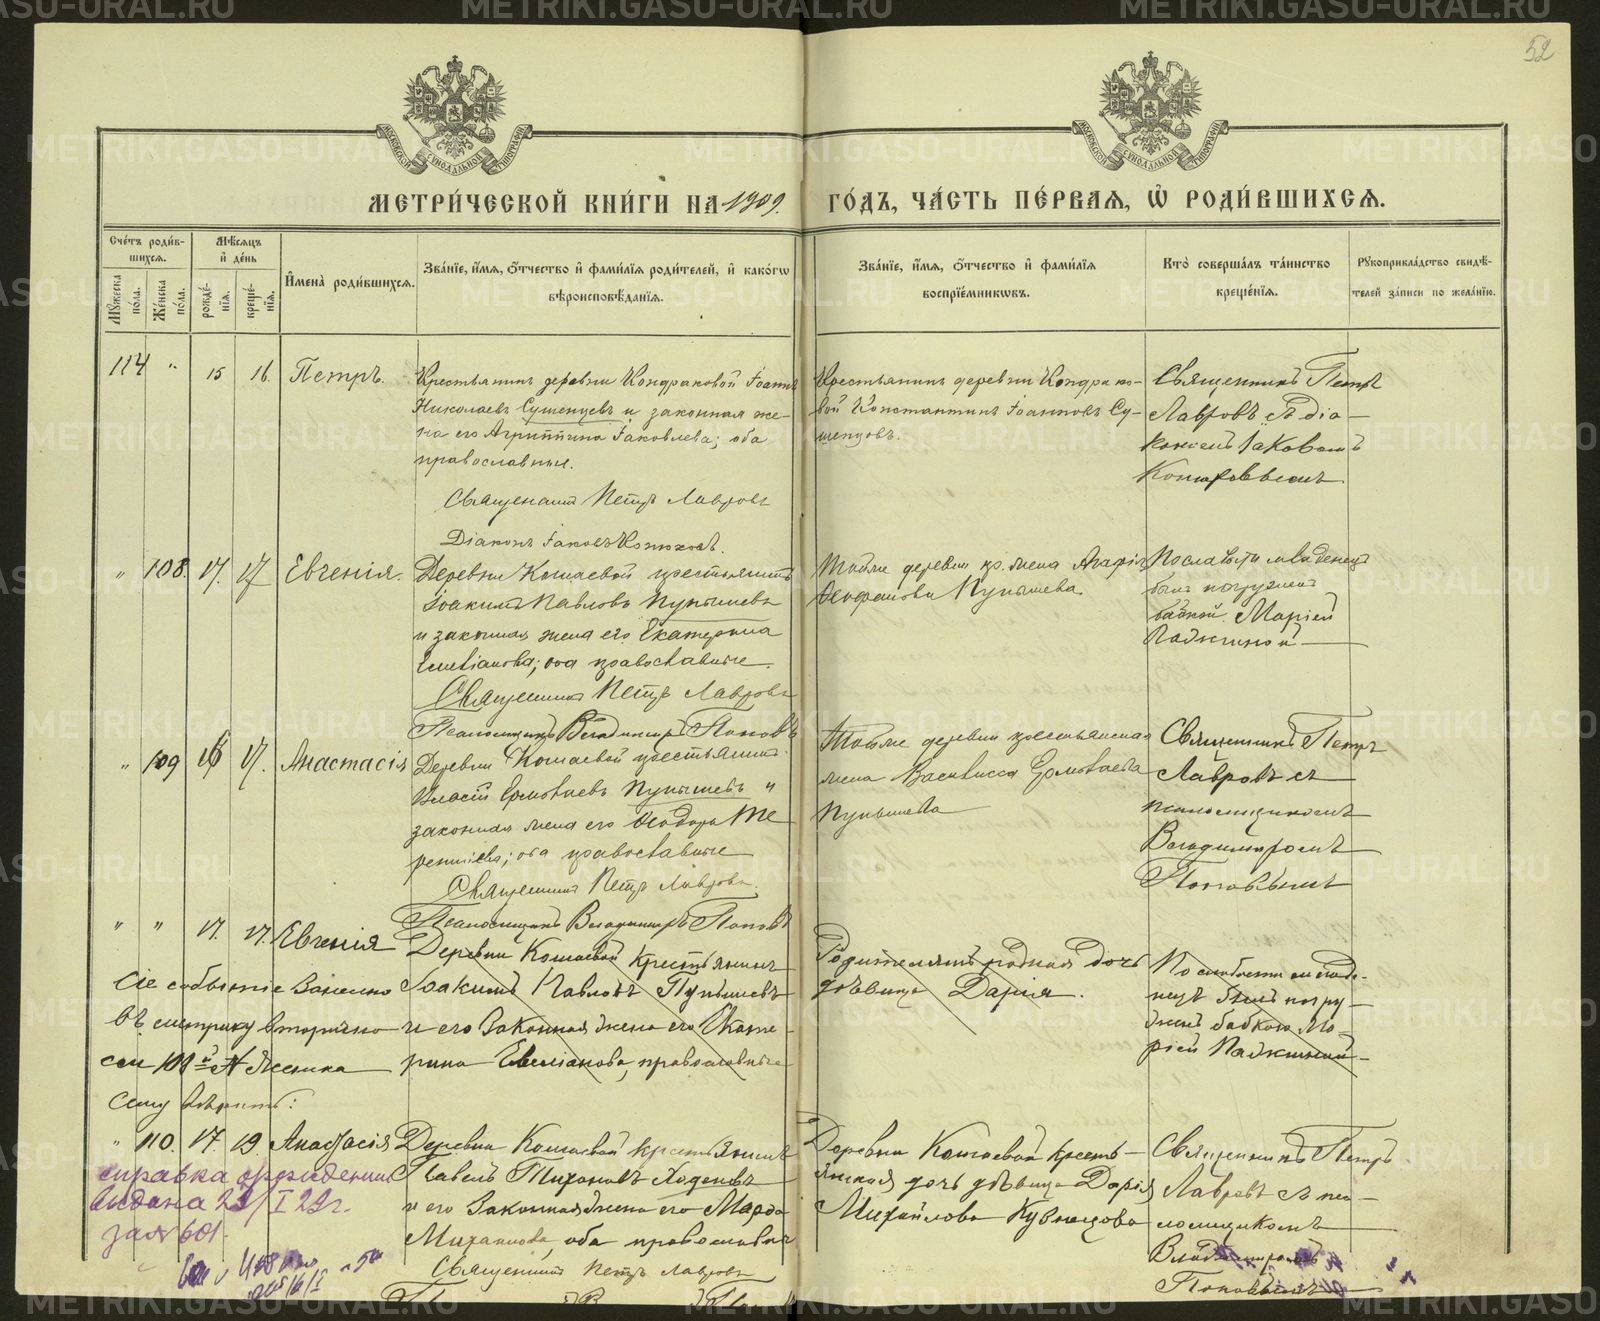 52
МЕТРИ́ЧЕСКОЙ КНИ́ГИ НА 1909.
ГО́ДЪ, ЧА́СТЬ ПЕ́РВАЯ, Ѡ РОДИ́ВШИХСЯ.
Сче́тъ роди́в-
шихся.
Мѣ́сяцъ
и де́нь
Мꙋ́жеска
по́ла.
Же́нска
по́ла.
рожде́-
нїя.
креще́-
нїя.
Имена̀ роди́вшихся.
Зва́нїе, и́мя, ѻ́тчество и фами́лїя роди́телей, и како́гѡ
вѣроисповѣ́данїя.
Зва́нїе, и́мя, ѻ́тчество и фами́лїя
воспрїе́мникѡвъ.
Кто̀ соверша́лъ та́инство
креще́нїя.
Рꙋкоприкла́дство свидѣ́-
телей за́писи по жела́нїю.
114 " 15 16. Петръ.
Крестьянинъ деревни Кондраковой Іоаннъ
Николаевъ Сушенцевъ и законная же-
на его Агриппина Іаковлева; оба
православные.
Священникъ Петръ Лавровъ
Діаконъ Іаковъ
Крестьянинъ деревни Кондрако-
вой Константинъ Іоанновъ Су-
шенцовъ.
Священникъ Петръ
Лавровъ съ діа-
кономъ Іаковомъ
" 108. 17. 17 Евгенія.
Деревни Кошаевой крестьянинъ
Іоакимъ Павловъ Пупышевъ
и законная жена его Екатерина
Емеліанова; оба православные.
Священникъ Петръ Лавровъ
Псаломщикъ Владимиръ Поповъ
Тойже деревни кр. жена Агафія
Пупышева
По слабости младенецъ
былъ погруженъ
бабкой Маріей
" 109 16 17. Анастасія
Деревни Кошаевой крестьянинъ
Власій Ермолаевъ Пупышевъ и
законная жена его Ѳеодора Те
рентіева; оба православные
Священникъ Петръ Лавровъ.
Псаломщикъ Владимиръ Поповъ
Тойже деревни крестьянская
жена Василисса Ермолаева
Пупышева
Священникъ Петръ
Лавровъ съ
псаломщикомъ
Владимиромъ
Поповымъ
" " 17. 17. Евгенія
Деревни Кошаевой крестьянинъ
Іоакимъ Павловъ Пупышевъ
и его законная жена его Екате-
рина Емеліанова, православные
Родителямъ родная дочь
дѣвица Дарія.
По слабости младе-
нецъ былъ погру-
женъ бабкою Ма-
ріей
Сіе событіе записано
въ метрику вторично
см 108
сему вѣрить:
" 110. 17. 19. Анастасія
Деревни Кошаевой крестьянинъ
Павелъ Тихоновъ Ходеневъ
и его законная жена его Марѳа
Михаилова, оба православные
Священникъ Петръ Лавровъ
Деревни Кошаевой кресть-
янская дочь дѣвица Дарія
Михайлова Кузнецова
Священникъ Петръ
Лавровъ съ пса-
ломщикомъ
Владимиромъ
Поповымъ
справка о рождении
выдана 23/I 22г.
за № 601.
METRIKI.GASO-URAL.RU